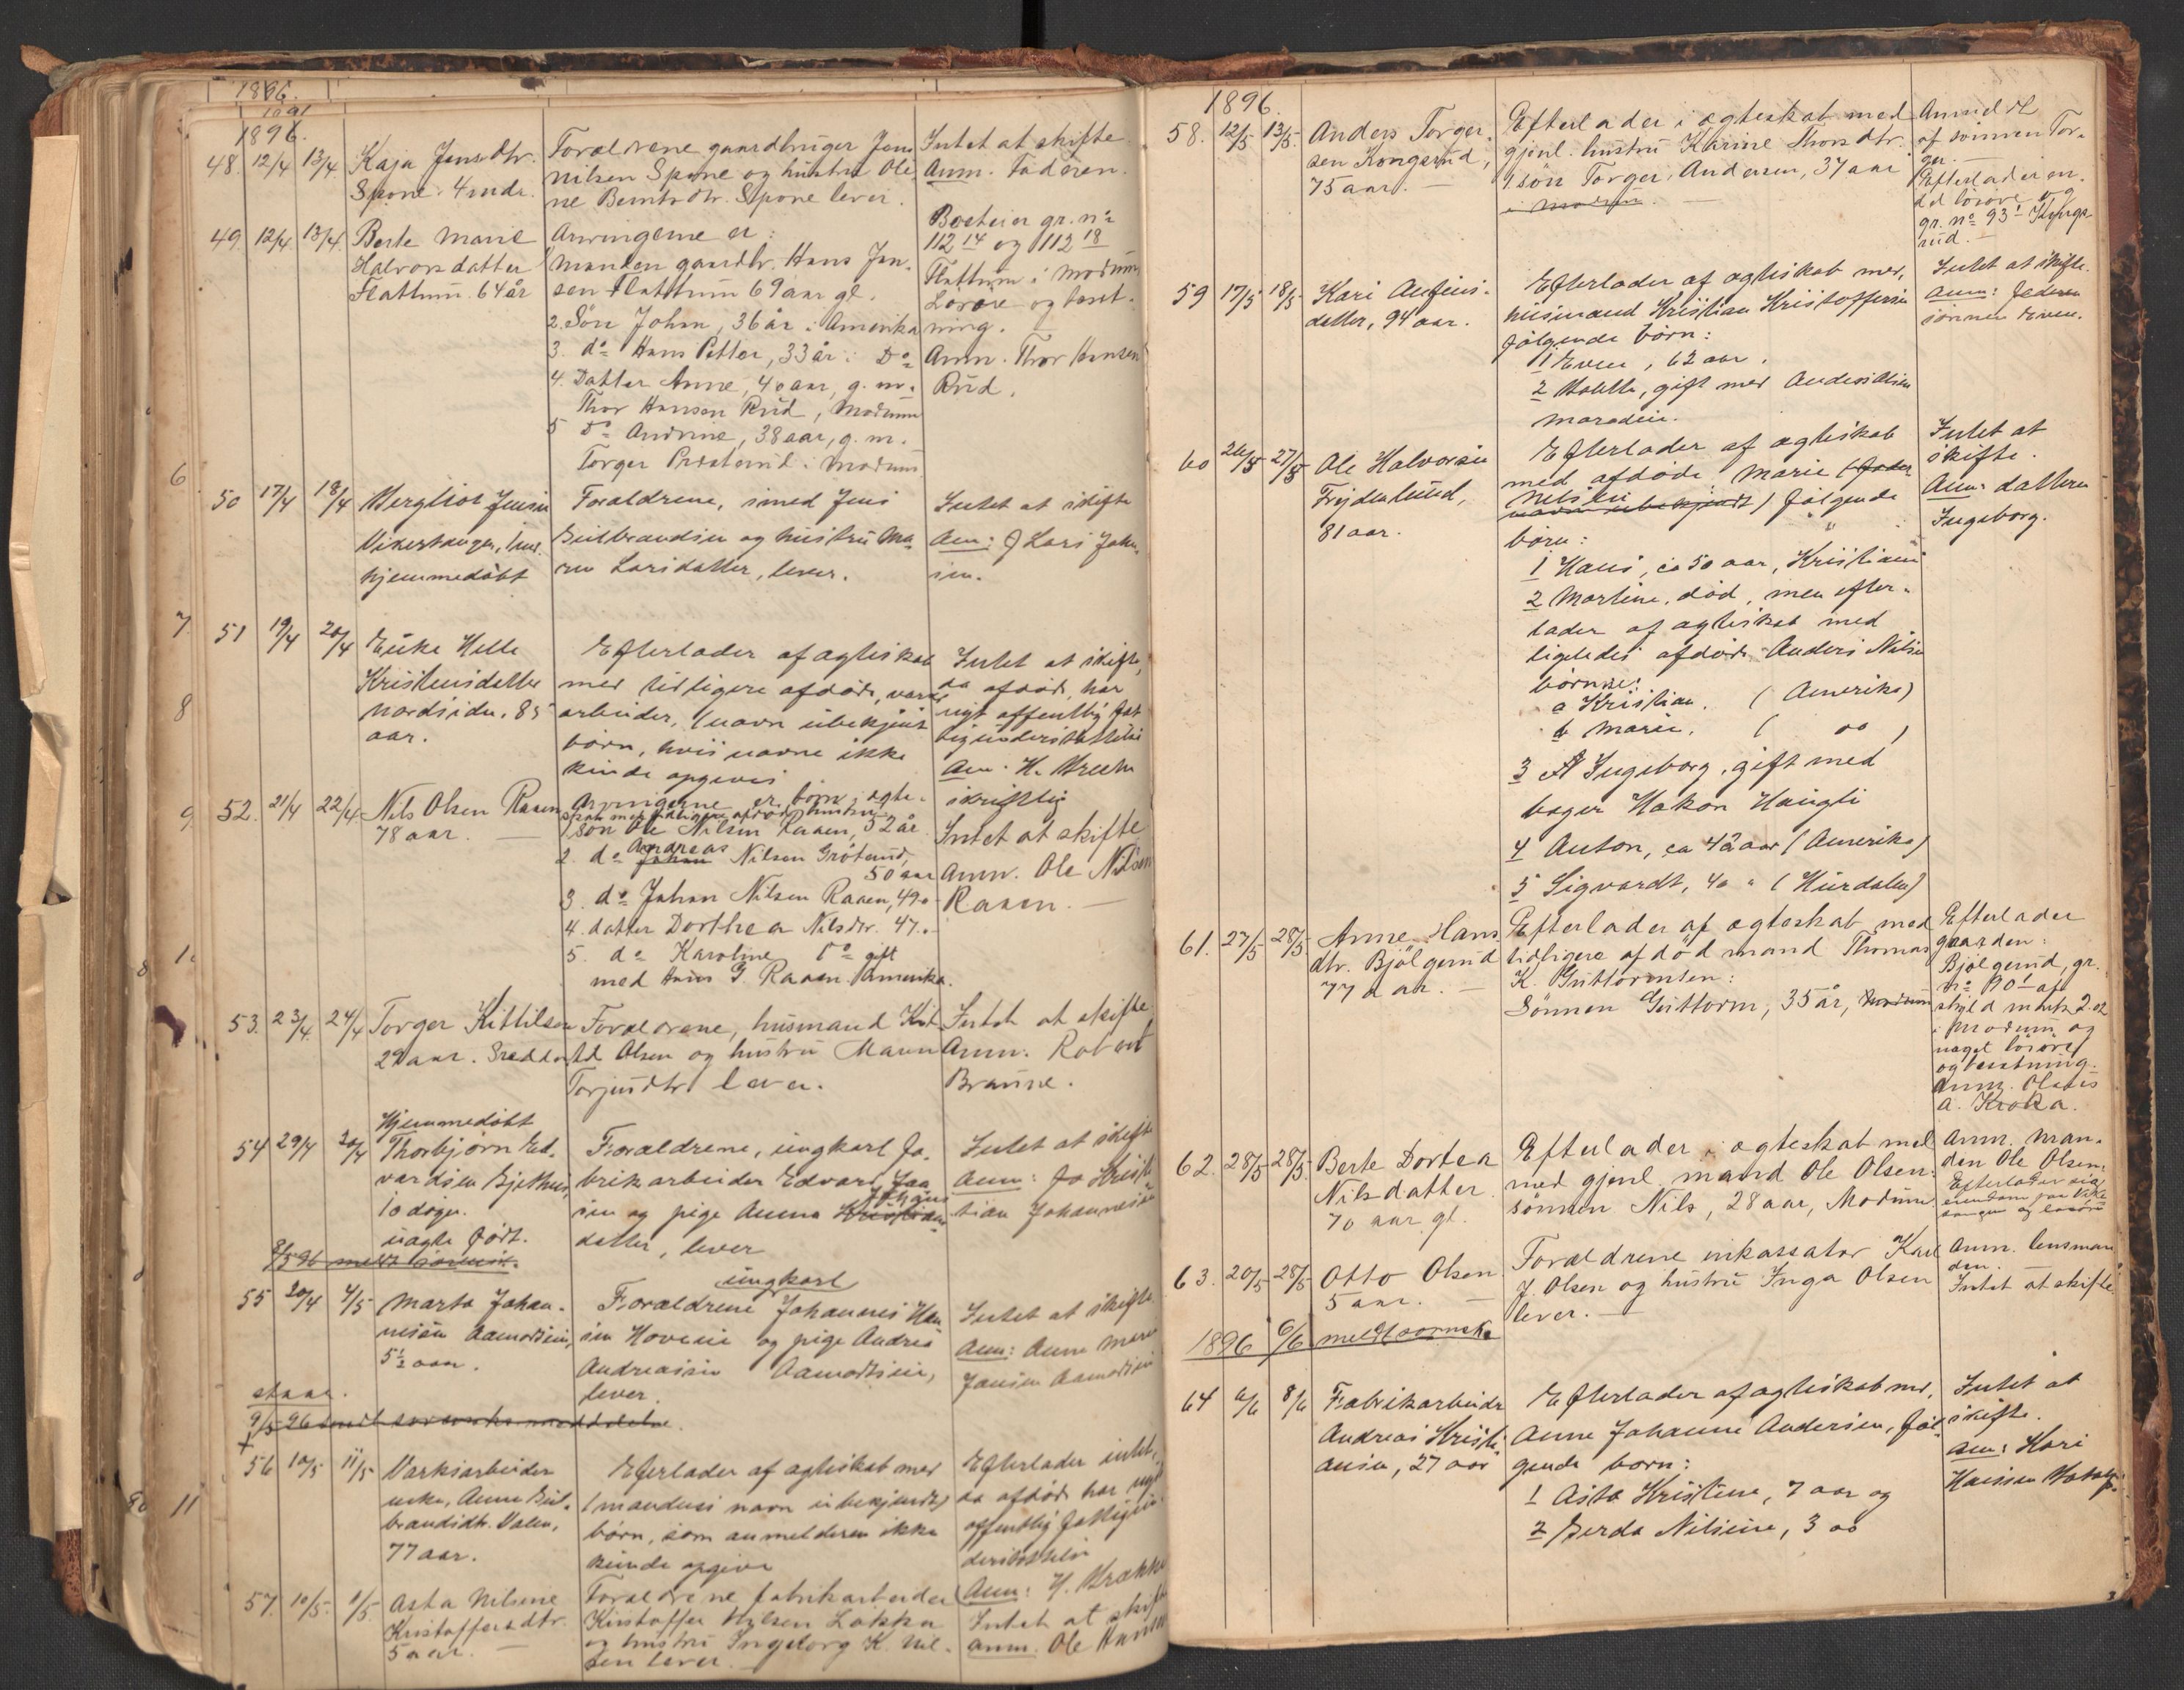 1896.
1896.
48. 12/4 13/4 Kaja Jensdtr.
Spone 4 mdr.
Forældrene gaardbruger Jens
Nilsen Spone og hustru Ole
ne Berntsdtr. Spone lever.
Intet at skifte
Anm. Faderen.
49 12/4 13/4 Berte Marie
Halvorsdatter
Flattum. 64 år
Arvingerne er:
1 Manden gaardbr. Hans Jen.
sen Flattum 69 aar gl.
2. Søn John, 36 år i Amerika
3. do Hans Petter, 33 år i Do
4. Datter Anne, 40 aar, g. m.
Thor Hansen Rud, Modum
5 Do Andrine, 38 aar, g. m.
Torger Presterud i Modum
Boet eier gr. no
112 14 og 112 18
Flattum i Modum
Løsøre og besæt-
ning.
Anm. Thor Hansen
Rud.
50 17/4 18/4 Bergliot Jensen
Vikersanger, 1 md.
hjemmedøbt
Forældrene, smed Jens
Gulbrandsen og hustru Ma
ren Larsdatter, lever.
Intet at skifte
Anm: J Lars Johan
sen.
51 19/4 20/4 Enke Helle
Kristensdatter
Nordsiden. 85
aar.
Efterlader af ægteskab
med tidligere afdøde,
arbeider, (navn ubekjent
børn, hvis navne ikke
kunde opgives
Intet at skifte,
da afdøde har
nyt offentlig fat
tigunderstøttelse
Anm. H.
skriftlig
52. 21/4 22/4 Nils Olsen Raaen
78 aar.
Arvingerne er børn i ægte-
skab med tidligere afdøde hustru
1 søn Ole Nilsen Raaen, 52 år
2. do Andreas Johan Nilsen Grøterud,
50 aar
3. do Johan Nilsen Raaen, 49 "
4. datter Dorthea Nilsdtr. 47 "
5. do Karoline Do gift
med Hans G. Raaen i Amerika.
Intet at skifte
Anm. Ole Nilsen
Raaen.
53. 23/4. 24/4 Torger Kittilsen
29 aar.
Forældrene, husmand Kit
til Olsen og hustru Maren
Torjusdtr lever.
Intet at skifte
Anm. Robert
Braune.
54 29/4 30/4 Hjemmedøbt
Thorbjørn Ed.
vardsen Gjethus,
10 døgn.
uægte født.
Forældrene, ungkarl fa.
brikarbeider Edvard Joa
sen og pige Anna Johans Kristians
datter, lever
Intet at skifte
Anm: Jo Kris
tian Johannesen
8/5 96
55 30/4 4/5 Marta Johan-
nesen Aamotseie,
5 1/2 aar.
ungkarl
Forældrene Johannes Han
sen Hoveneie og pige Andrea
Andreassen Aamotseie,
lever
Intet at skifte
Anm: Anne Marie
Jensen Aamotseie
9/5 96
56 10/5 11/5 Værksarbeider
enke, Anne Gul-
brandsdtr. Dalen,
77 aar.
Efterlader af ægteskab med
(mandens navn ubekjendt)
børn, som anmelderen ikke
kunde opgive
Efterlader intet,
da afdøde har nydt
offentlig fattigun
derstøttelse
Anm: H.
57. 10/5. 11/5. Asta Nilsine
Kristoffersdtr.
5 aar.
Forældrene fabrikarbeider
Kristoffer Nilsen Løkka
og hustru Ingeborg K. Nil-
sen lever.
Intet at skifte
Anm. Ole Hansen
1896.
58. 12/5 13/5. Anders Torger-
sen Kongsrud,
75 aar.
Efterlader i ægteskab med
gjenl. hustru Karine Thorsdtr.
1 søn Torger Andersen, 37 aar
i Modum.
Anmeldt
af sønnen Tor-
ger.
Efterlader en
del løsøre og
gr. no 93 1 Kongs-
rud.
59 17/5 18/5 Kari Aufins-
datter, 94 aar.
Efterlader af ægteskab med,
husmand Kristian Kristoffersen
følgende børn:
1 Even, 62 aar.
2 gift med Anders Olsen
Moradeie.
Intet at skifte.
Anm:
sønnen Even.
60 26/5 27/5 Ole Halvorsen
Frydenlund,
81 aar.
Efterlader af ægteskab
med afdøde Marie
Nilsen følgende
børn:
1 Hans, ca 50 aar, Kristiania
2 Martine, død, men efter-
lader af ægteskab med
ligeledes afdøde Anders Nilsen
børnene:
a Kristian. (Amerika)
b Marie. ( do )
3 Ingeborg, gift med
bager Hakon Haugli
4 Anton, ca 42 aar (Amerika)
5 Sigvardt, 40 " (Hurdalen)
Intet at
skifte.
Anm: datteren
Ingeborg.
61. 27/5 28/5. Anne Hans
dtr. Bjølgerud
77 aar.
Efterlader af ægteskab med
tidligere afdød mand Thomas
K. Guttormsen:
Sønnen Guttorm, 35 år, Modum
Efterlader
gaarden:
Bjølgerud, gr.
no 90 1 af
skyld mark 2.02
i Modum og
noget løsøre
og besætning.
Anm. Olaves
A. Kroka.
62. 28/5 28/5. Berte Dortea
Nilsdatter
70 aar gl.
Efterlader i ægteskab med
med gjenl. mand Ole Olsen:
sønnen Nils, 28 aar, Modum.
Anm. Man-
den Ole Olsen.
63. 20/5 28/5 Otto Olsen
5 aar.
Forældrene inkassator Karl
J. Olsen og hustru Inga Olsen
lever.
Anm. lensman
den.
Intet at skifte
1896 6/6 meldt sornsk.
64 6/6 8/6 Fabrikarbeider
Andreas Kristi-
ansen, 27 aar
Efterlader af ægteskab med,
Anne Johanne Andersen, føl-
gende børn:
1 Asta Kristine, 7 aar og
2 Gerda Nilsine, 3 do
Intet at
skifte.
Anm: Kari